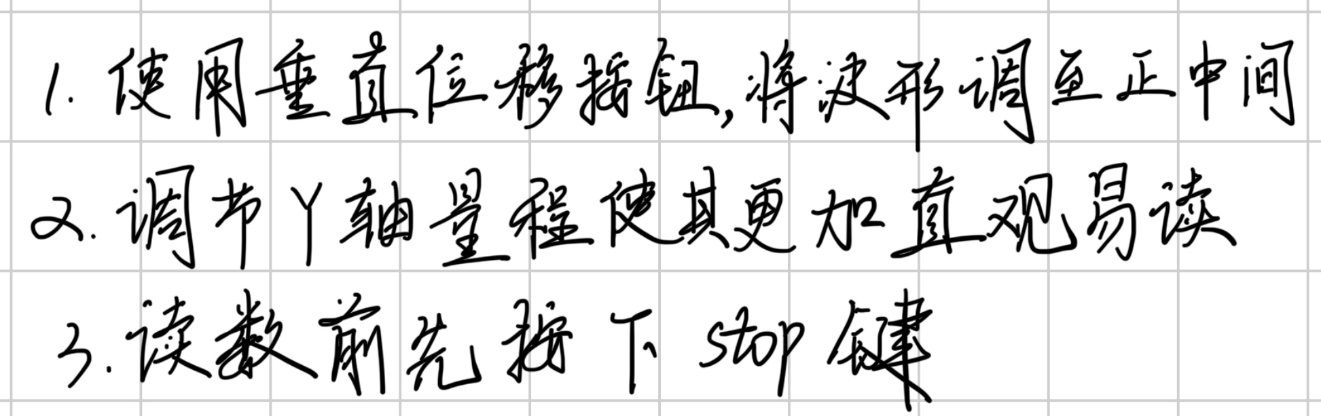 1. 使用垂直位移按钮,将波形调至正中间
2. 调节Y轴量程使其更加直观易读
3. 读数前先按下 stop 键